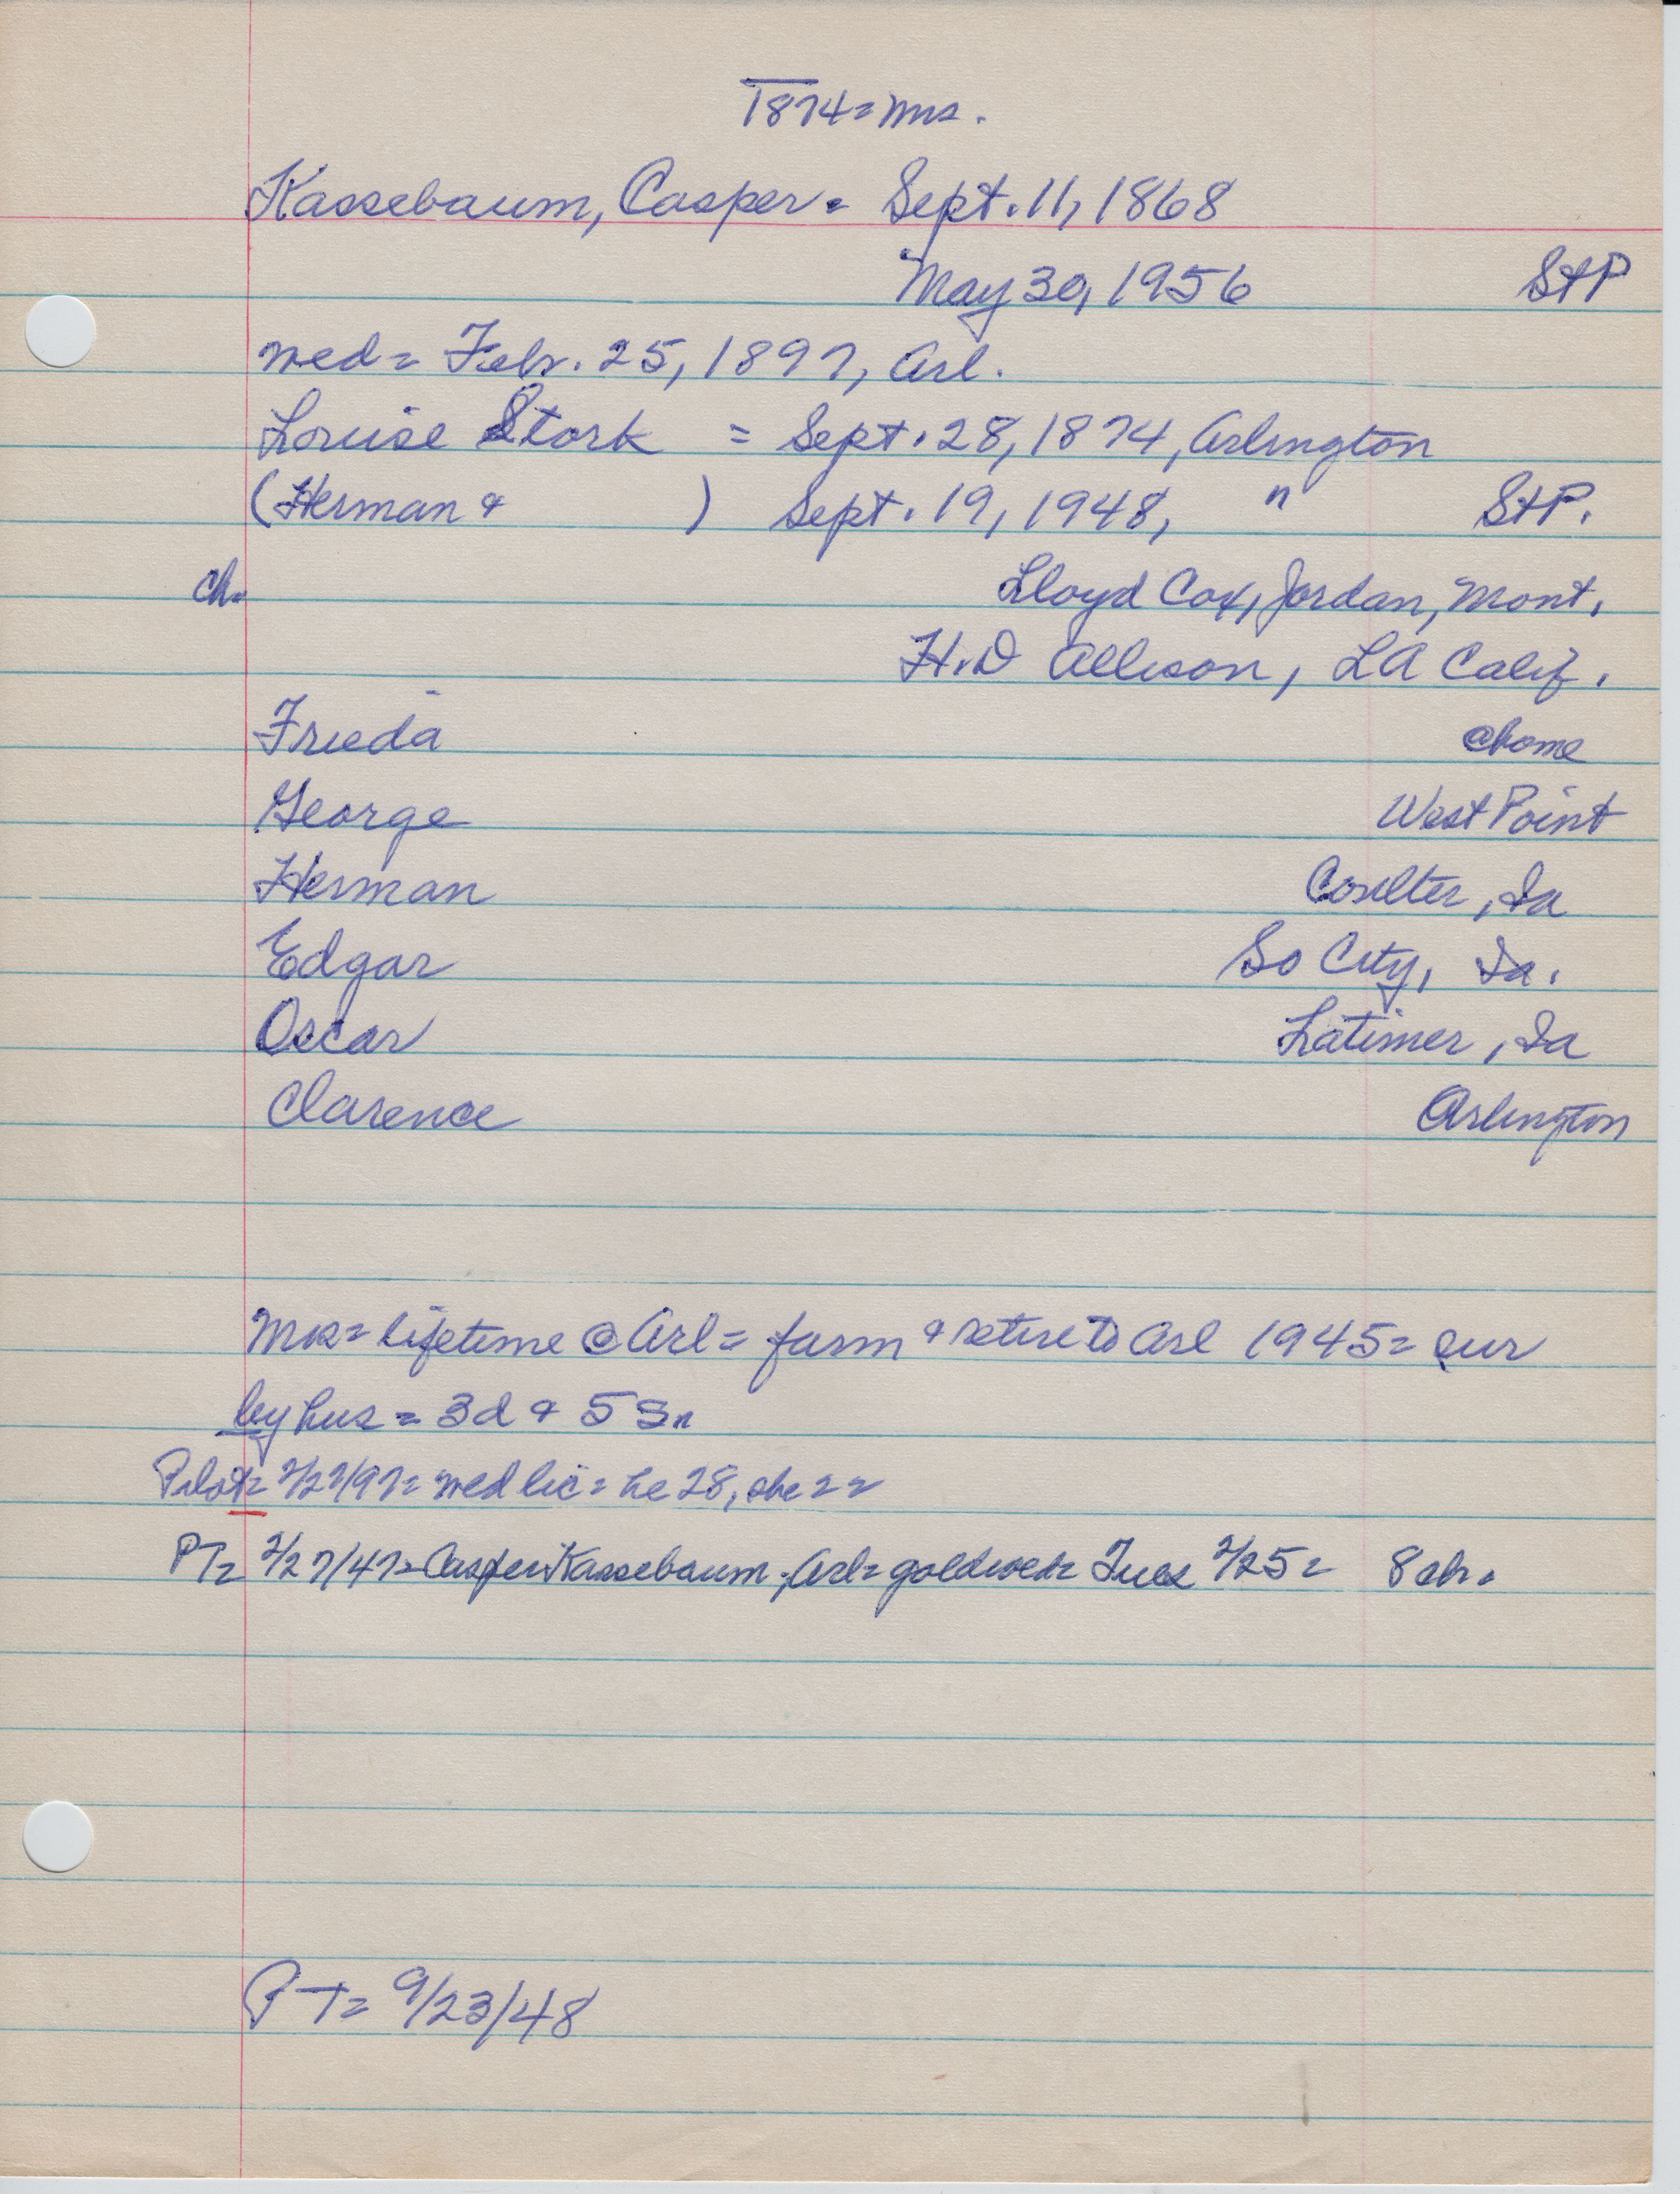 1874= Mrs.
Kassebaum, Casper = Sept. 11, 1868
May 30, 1956 StP
wed = Febr. 25, 1897, Arl.
Louise Stork = Sept. 28, 1874, Arlington
(Herman & ) Sept. 19, 1948, " StP.
ch.
Lloyd Cox, Jordan, Mont.
H.D Allison, LA Calif.
Frieda @home
George West Point
Herman Coulter, Ia
Edgar So City, Ia.
Oscar Latimer, Ia
Clarence Arlington
lifetime @ Arl = farm & retire to Arl 1945 = sur
by hus = 3d & 5 s
Pilot= 2/27/97= wed lic = he 28, she 22
PT= 2/27/47= Casper Kassebaum, Arl= gold wed= Tues 2/25 = 8 ch.
PT= 9/23/48